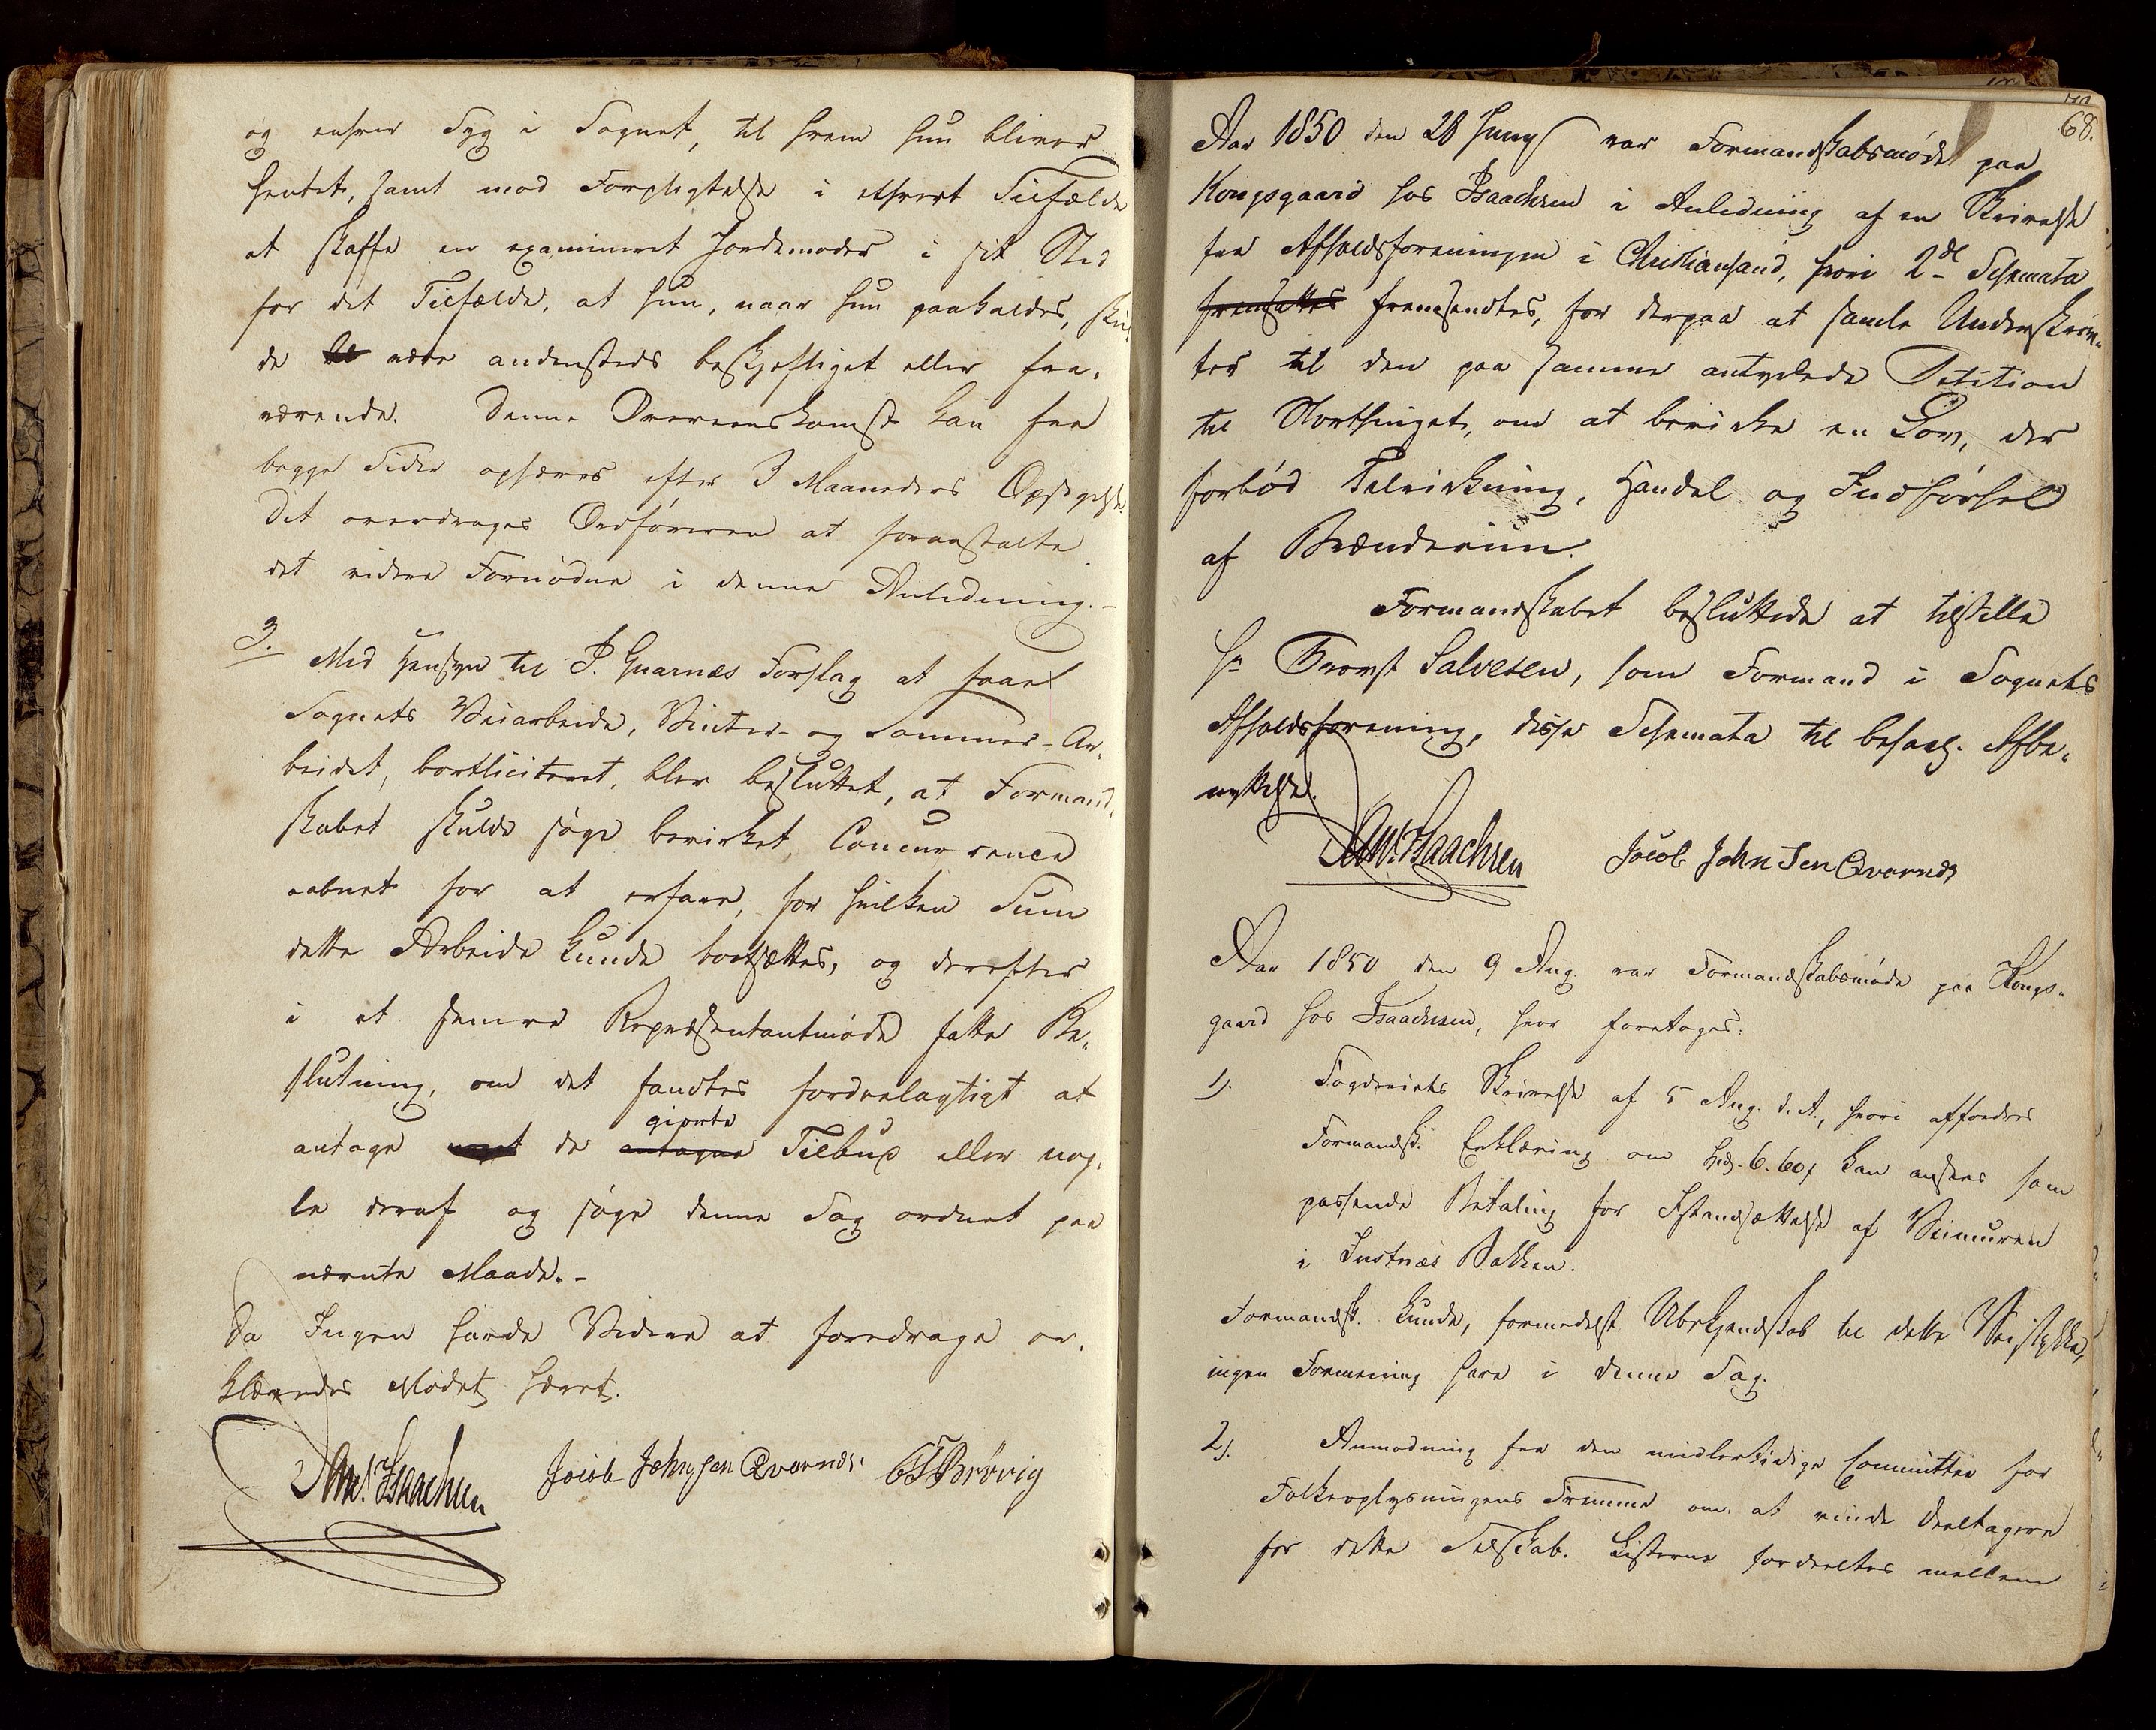 og enhver Syg i Sognet, til hvem hun bliver
hentet, samt mod Forpligtelse i ethvert Tilfælde
at skaffe en examineret Jordemoder i sit Sted
for det Tilfælde, at hun, naar hun paakaldes, skul
de være andensteds beskjeftiget eller fra-
værende. Denne Overeenskomst kan fra
begge Sider ophæves efter 3 Maaneders Opsigelse.
Det overdrages Ordføreren at foranstalte
det videre Fornødne i denne Anledning.-
3. Med Hensyn til P. Qvarnæs Forslag at faae
Sognets Veiarbeide, Vinter- og Sommer-Ar-
beidet, bortliciteret, blev besluttet, at Formand-
skabet skulde søge bevirket, Concurrence
aabnet for at erfare, for hvilken Sum
dette Arbeide kunde bortsættes, og derefter
i et senere Repræsentantmøde fatte Be-
slutning, om det fandtes fordeelagtigt at
giorte
antage noget de antagne Tilbud eller nog-
le deraf og søge denne Sag ordnet paa
nævnte Maade.-
Da Ingen havde Videre at foredrage er-
klæredes Mødet hævet.
Isaachsen Jacob Johnsen Qvarnæs. Brøvig
68.
Aar 1850 den 28 Juny var Formandskabsmødet paa
Kongsgaard hos Isaachsen i Anledning af en Skrivelse
fra Afholdsforeningen i Christiansand, hvori 2de Schemata
fremsattes fremsendtes, for derpaa at samle Underskrif-
ter til den paa samme antydede Petition
til Storthinget, om at bevirke en Lov, der
forbød Tilvirkning, Handel og Indførsel
af Brændeviin.
Formandskabet besluttede at tilstille
Hr Provst Salvesen, som Formand i Sognets
Afholdsforening, disse Schemata til behag. Afbe-
nyttelse.
Isaachsen Jacob Johnsen Qvarnæs
Aar 1850 den 9 Aug. var Formandskabsmøde paa Kongs-
gaard hos Isaachsen, hvor foretoges:
1). Fogderiets Skrivelse af 5 Aug. d. A., hvori affordres
Formandsk. Erklæring om 6. 60 kan ansees som
passende Betaling for Istandsættelse af Veimuren
i Justnæs Bakken.
Formandsk. kunde, formedelst Ubekjendtskab til dette Veistykke,
ingen Formening have i denne Sag.
2). Anmodning fra den midlertidige Committee for
Folkeoplysningens Fremme om at vinde Deeltagere
for dette Selskab. Listerne fordeeltes mellem